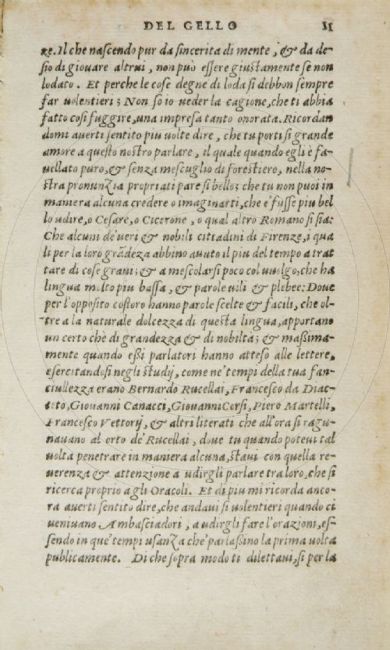 DEL GELLO 31
re. Il che nascendo pur da sincerita di mente, & da de-
sio di giovare altrui, non può essere giustamente se non
lodato. Et perche le cose degne di loda si debbon sempre
far volentieri; Non so io veder la cagione, che ti abbia
fatto cosi fuggire, una impresa tanto onorata. Ricordan
domi averti sentito piu volte dire, che tu porti si grande
amore a questo nostro parlare, il quale quando egli è fa-
vellato puro, & senza mescuglio di forestiero, nella no-
stra pronunzia propria ti pare si bello; che tu non puoi in
maniera alcuna credere o imaginarti, che e' fusse piu bel
lo udire, o Cesare, o Cicerone, o qual altro Romano si sia.
Che alcuni de' veri & nobili cittadini di Firenze, i qua
li per la loro grãdeza abbino avuto il piu del tempo a trat
tare di cose gravi; & a mescolarsi poco col vulgo, che ha
lingua molto piu bassa, & parole vili & plebee: Dove
per l'opposito costoro hanno parole scelte & facili, che ol-
tre a la naturale dolcezza di questa lingua, apportano
un certo che di grandezza & di nobiltà; & massima-
mente quando essi parlatori hanno atteso alle lettere,
esercitandosi negli studij, come ne' tempi della tua fan-
ciullezza erano Bernardo Rucellai, Francesco da Diac-
ceto, Giovanni Canacci, Giovanni Corsi, Piero Martelli,
Francesco Vettory, & altri literati che all'ora si ragu-
navano al orto de' Rucellai, dove tu quando potevi tal
volta penetrare in maniera alcuna, stavi con quella re-
verenza & attenzione a udirgli parlare tra loro, che si
ricerca proprio a gli Oracoli. Et di piu mi ricorda anco-
ra averti sentito dire, che andavi si volentieri quando ci
venivano Ambasciadori, a udirgli fare l'orazioni, es-
sendo in que' tempi usanza che' parlassino la prima volta
publicamente. Di che sopra modo ti dilettavi, si per la